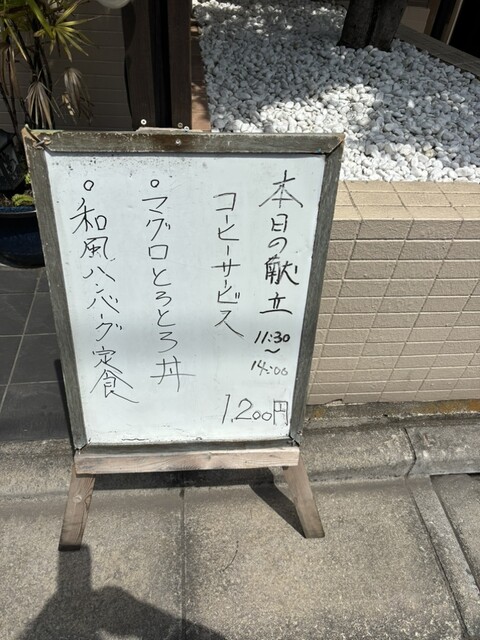 本日の献立
11:30
〜
14:00
1,200円
コーヒーサービス
○マグロとろとろ丼
○和風ハンバーグ定食